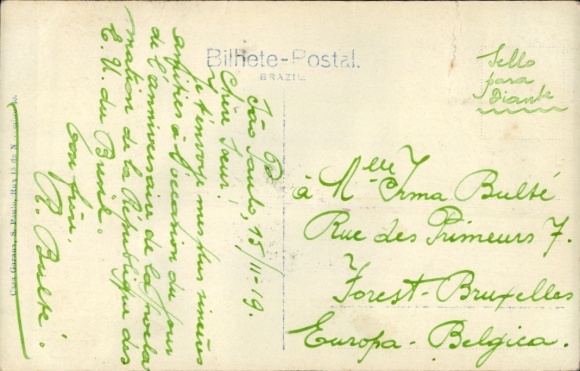 Bilhete-Postal.
BRAZIL
Sello
para
Diante
São Paulo, 15/II-19.
Chère Soeur,
Je t'envoye mes plus sincères
amitiés à l'occasion du jour
de l'anniversaire de la procla
mation de la République des
E. U. du Brésil.
Ton frère.
R. Bulté.
à Mlle Irma Bulté
Rue des Primeurs 7.
Forest-Bruxelles
Europa-Belgica.
Casa Garaux, S. Paulo, Rua 15 de N